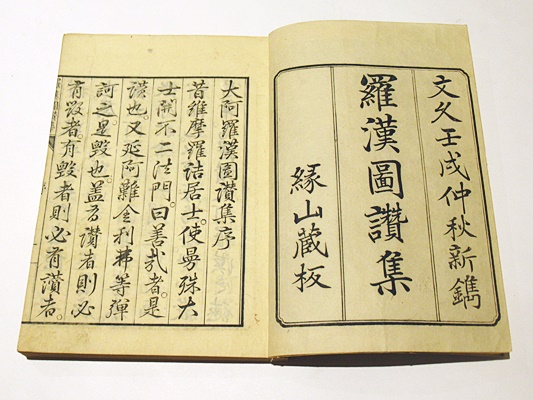 文久壬戌仲秋新鐫
羅漢圖讚集
縁山藏板
大阿羅漢圖讚集序
昔維摩羅詰居士。使曼殊大
士開不二法門。曰善哉者。是
讚也。又延阿難舍利弗等彈
訶之。是毀也。蓋有讚者則必
有毀者。有毀者則必有讚者。